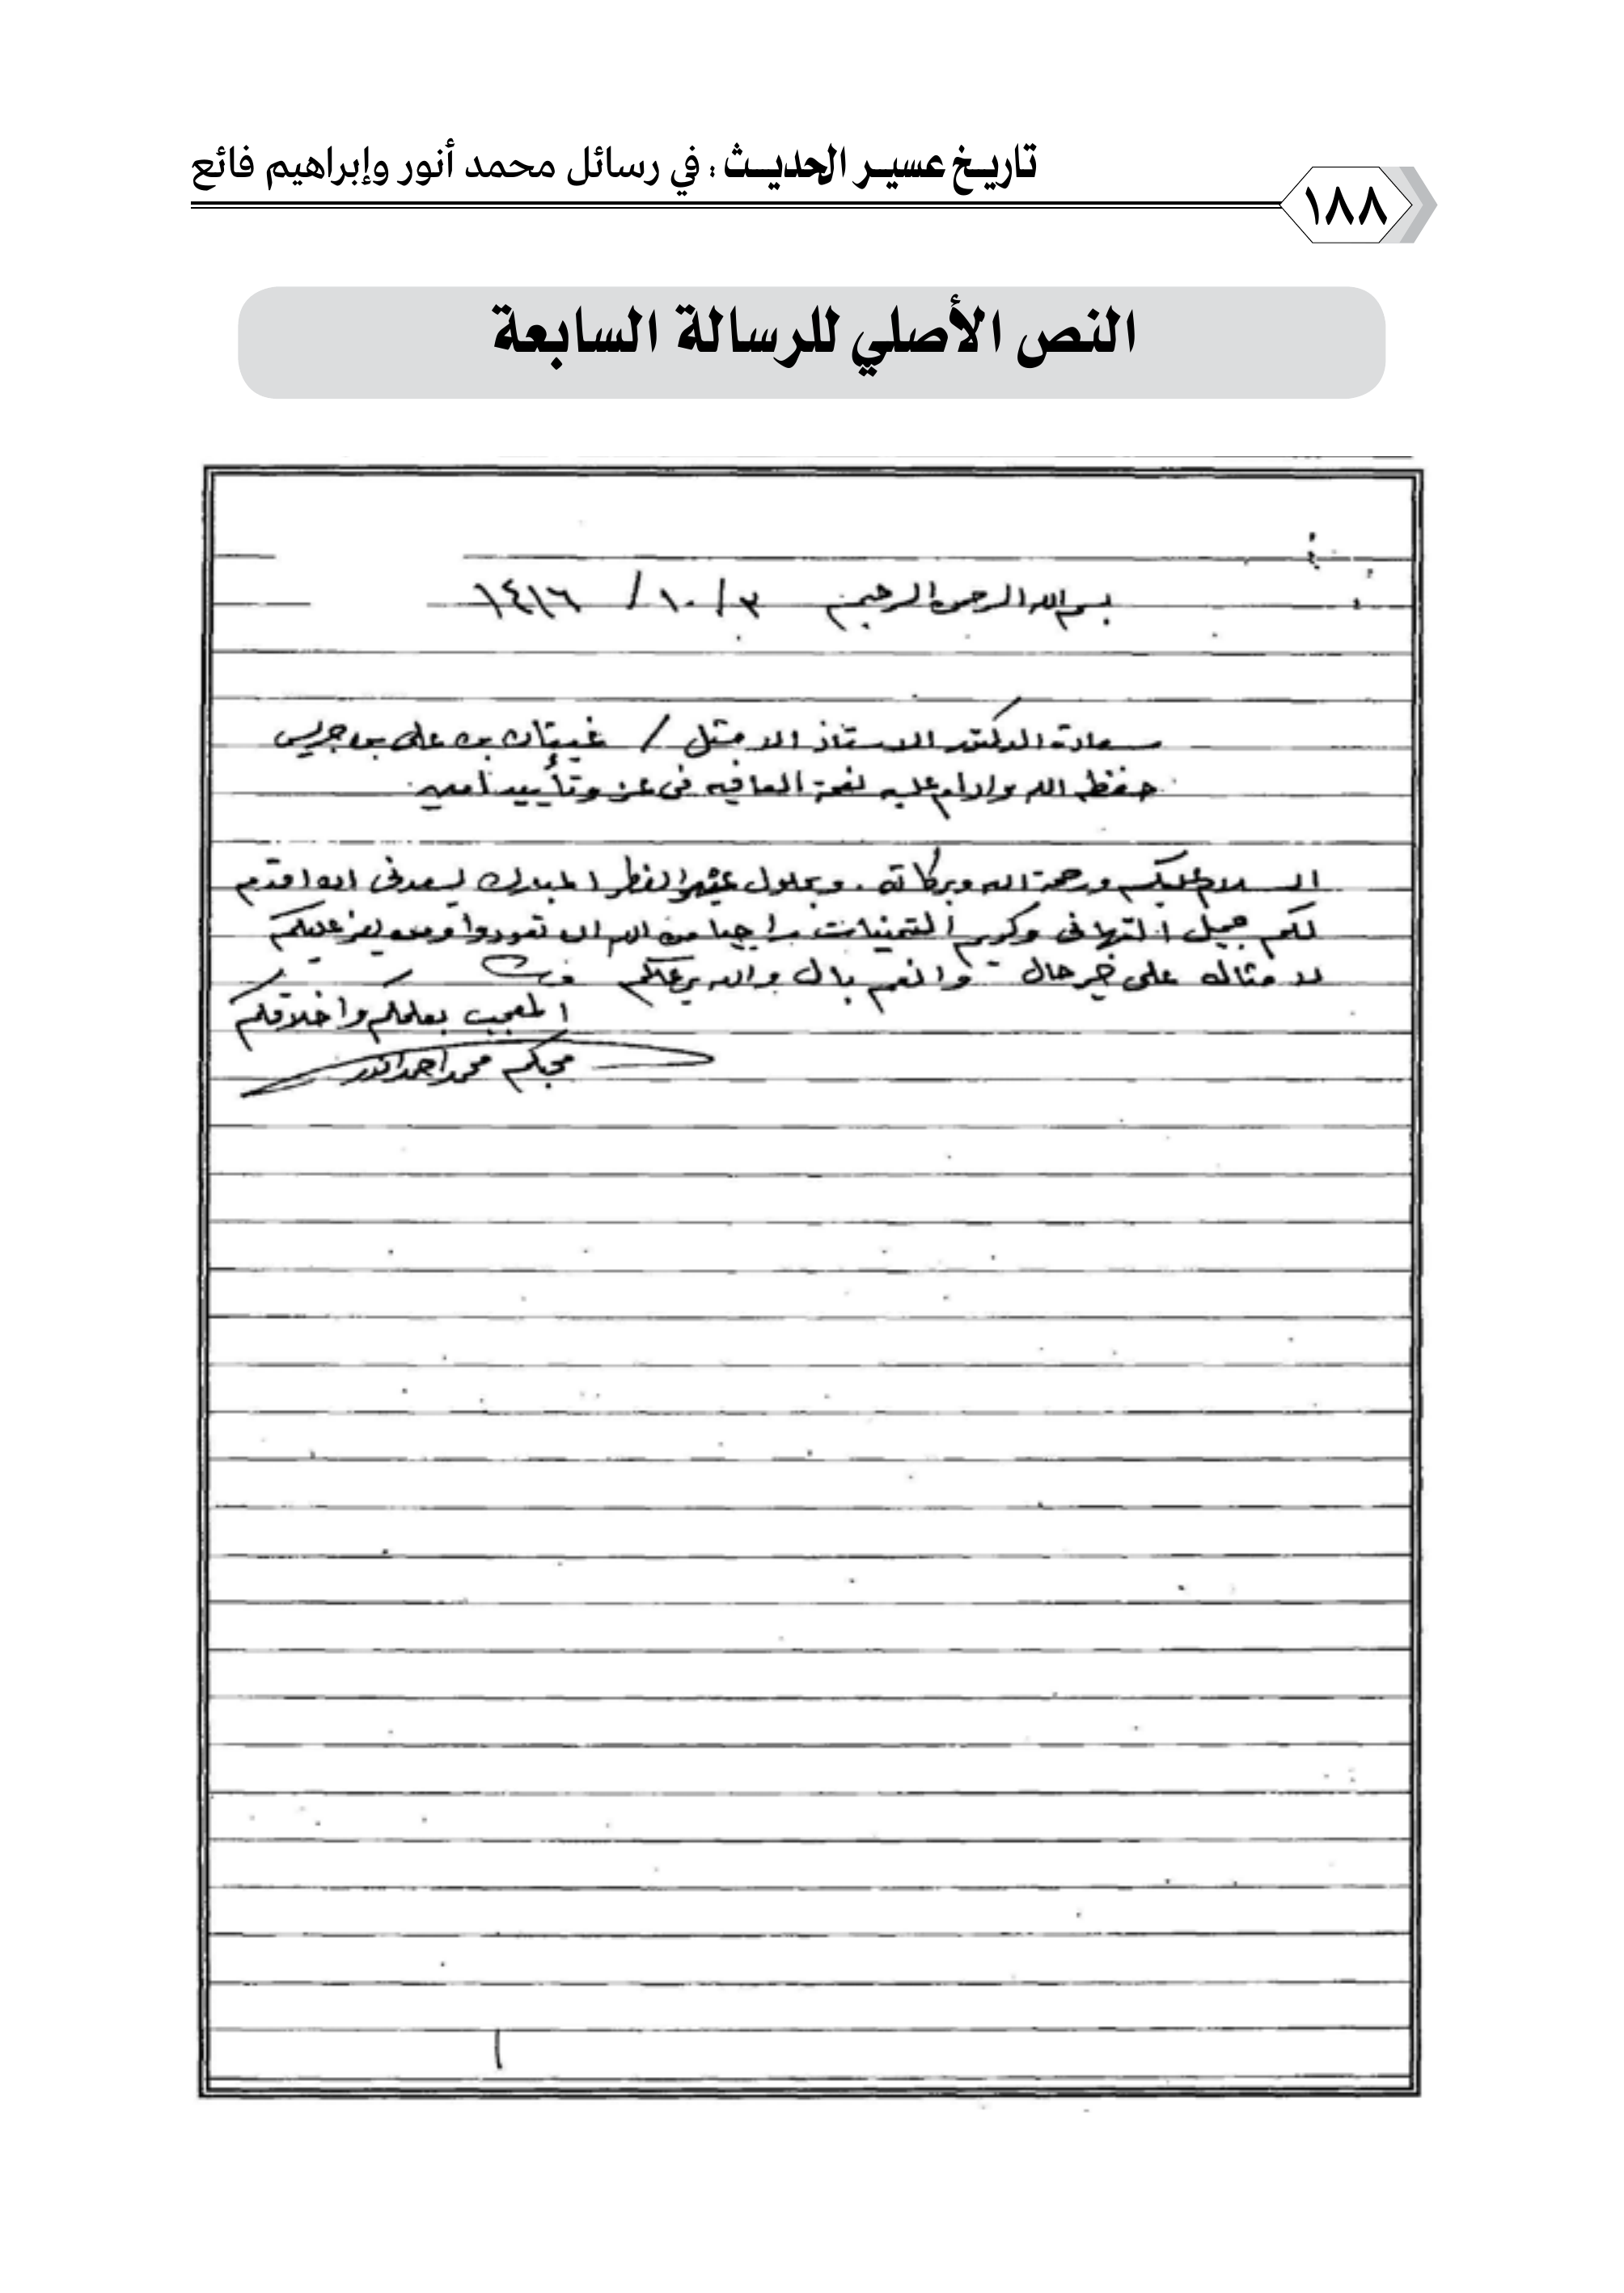 تاريخ عسير الحديث : في رسائل محمد أنور وإبراهيم فائع
١٨٨
النص الأصلي للرسالة السابعة
بسم الله الرحمن الرحيم ٣ / ١٠ / ١٤١٦
سعادة الدكتور الاستاذ الامثل / غيثان بن علي بن جريس
حفظه الله وادام عليه نعمة العافيه فى عز وتأييد امين
السلام عليكم ورحمة الله وبركاته . وبحلول الفطر المبارك يسعدنى ان اقدم
لكم جميل التهانى وكريم التمنيات راجيا من الله ان تعودوا ومن يعز عليكم
لامثاله على خير حال وانعم بال والله يرعاكم
المعجب بعلمكم واخلاقكم
محبكم محمد احمد انور